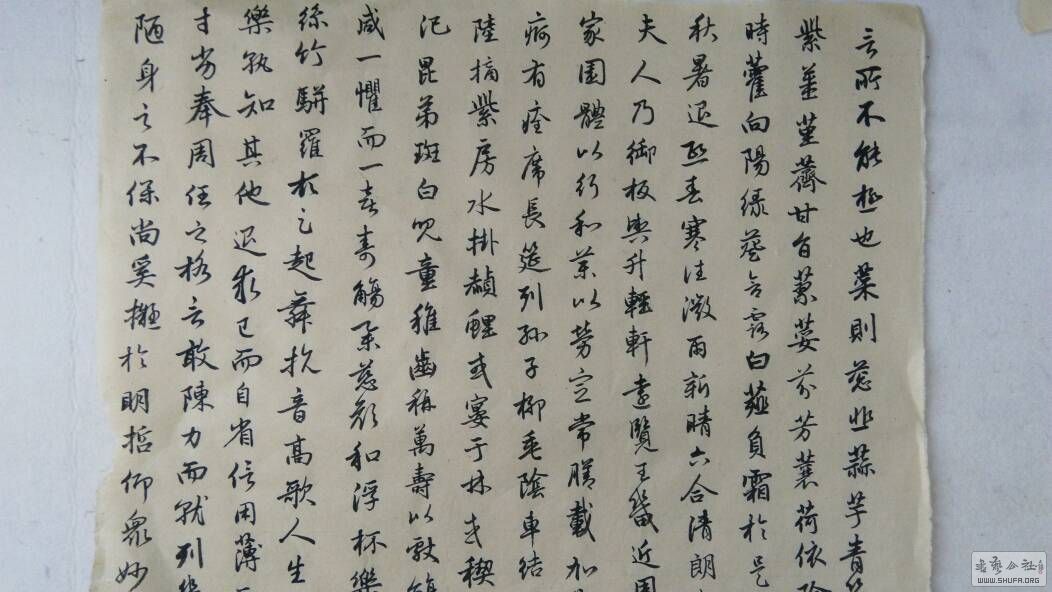 言所不能極也菜則葱韭蒜芋青
紫薑堇薺甘旨蓼荽芬芳蘘荷依陰
時藿向陽綠葵含露白薤負霜於是
秋暑退熙春寒往微雨新晴六合清朗
夫人乃御板輿升輕軒遠覽王畿近周
家園體以行和藥以勞宣常膳載加
痾有痊席長筵列孫子柳垂陰車結
陸摘紫房水掛赬鯉或宴于林或禊
汜昆弟斑白兒童稚齒稱萬壽以獻觴
咸一懼而一喜壽觴舉慈顏和浮杯樂
絲竹駢羅頓足起舞抗音高歌人生
樂孰知其他退求己而自省信用薄
才劣奉周任之格言敢陳力而就列幾
陋身之不保尚奚擬於明哲仰衆妙
書藝公社
WWW.SHUFA.ORG